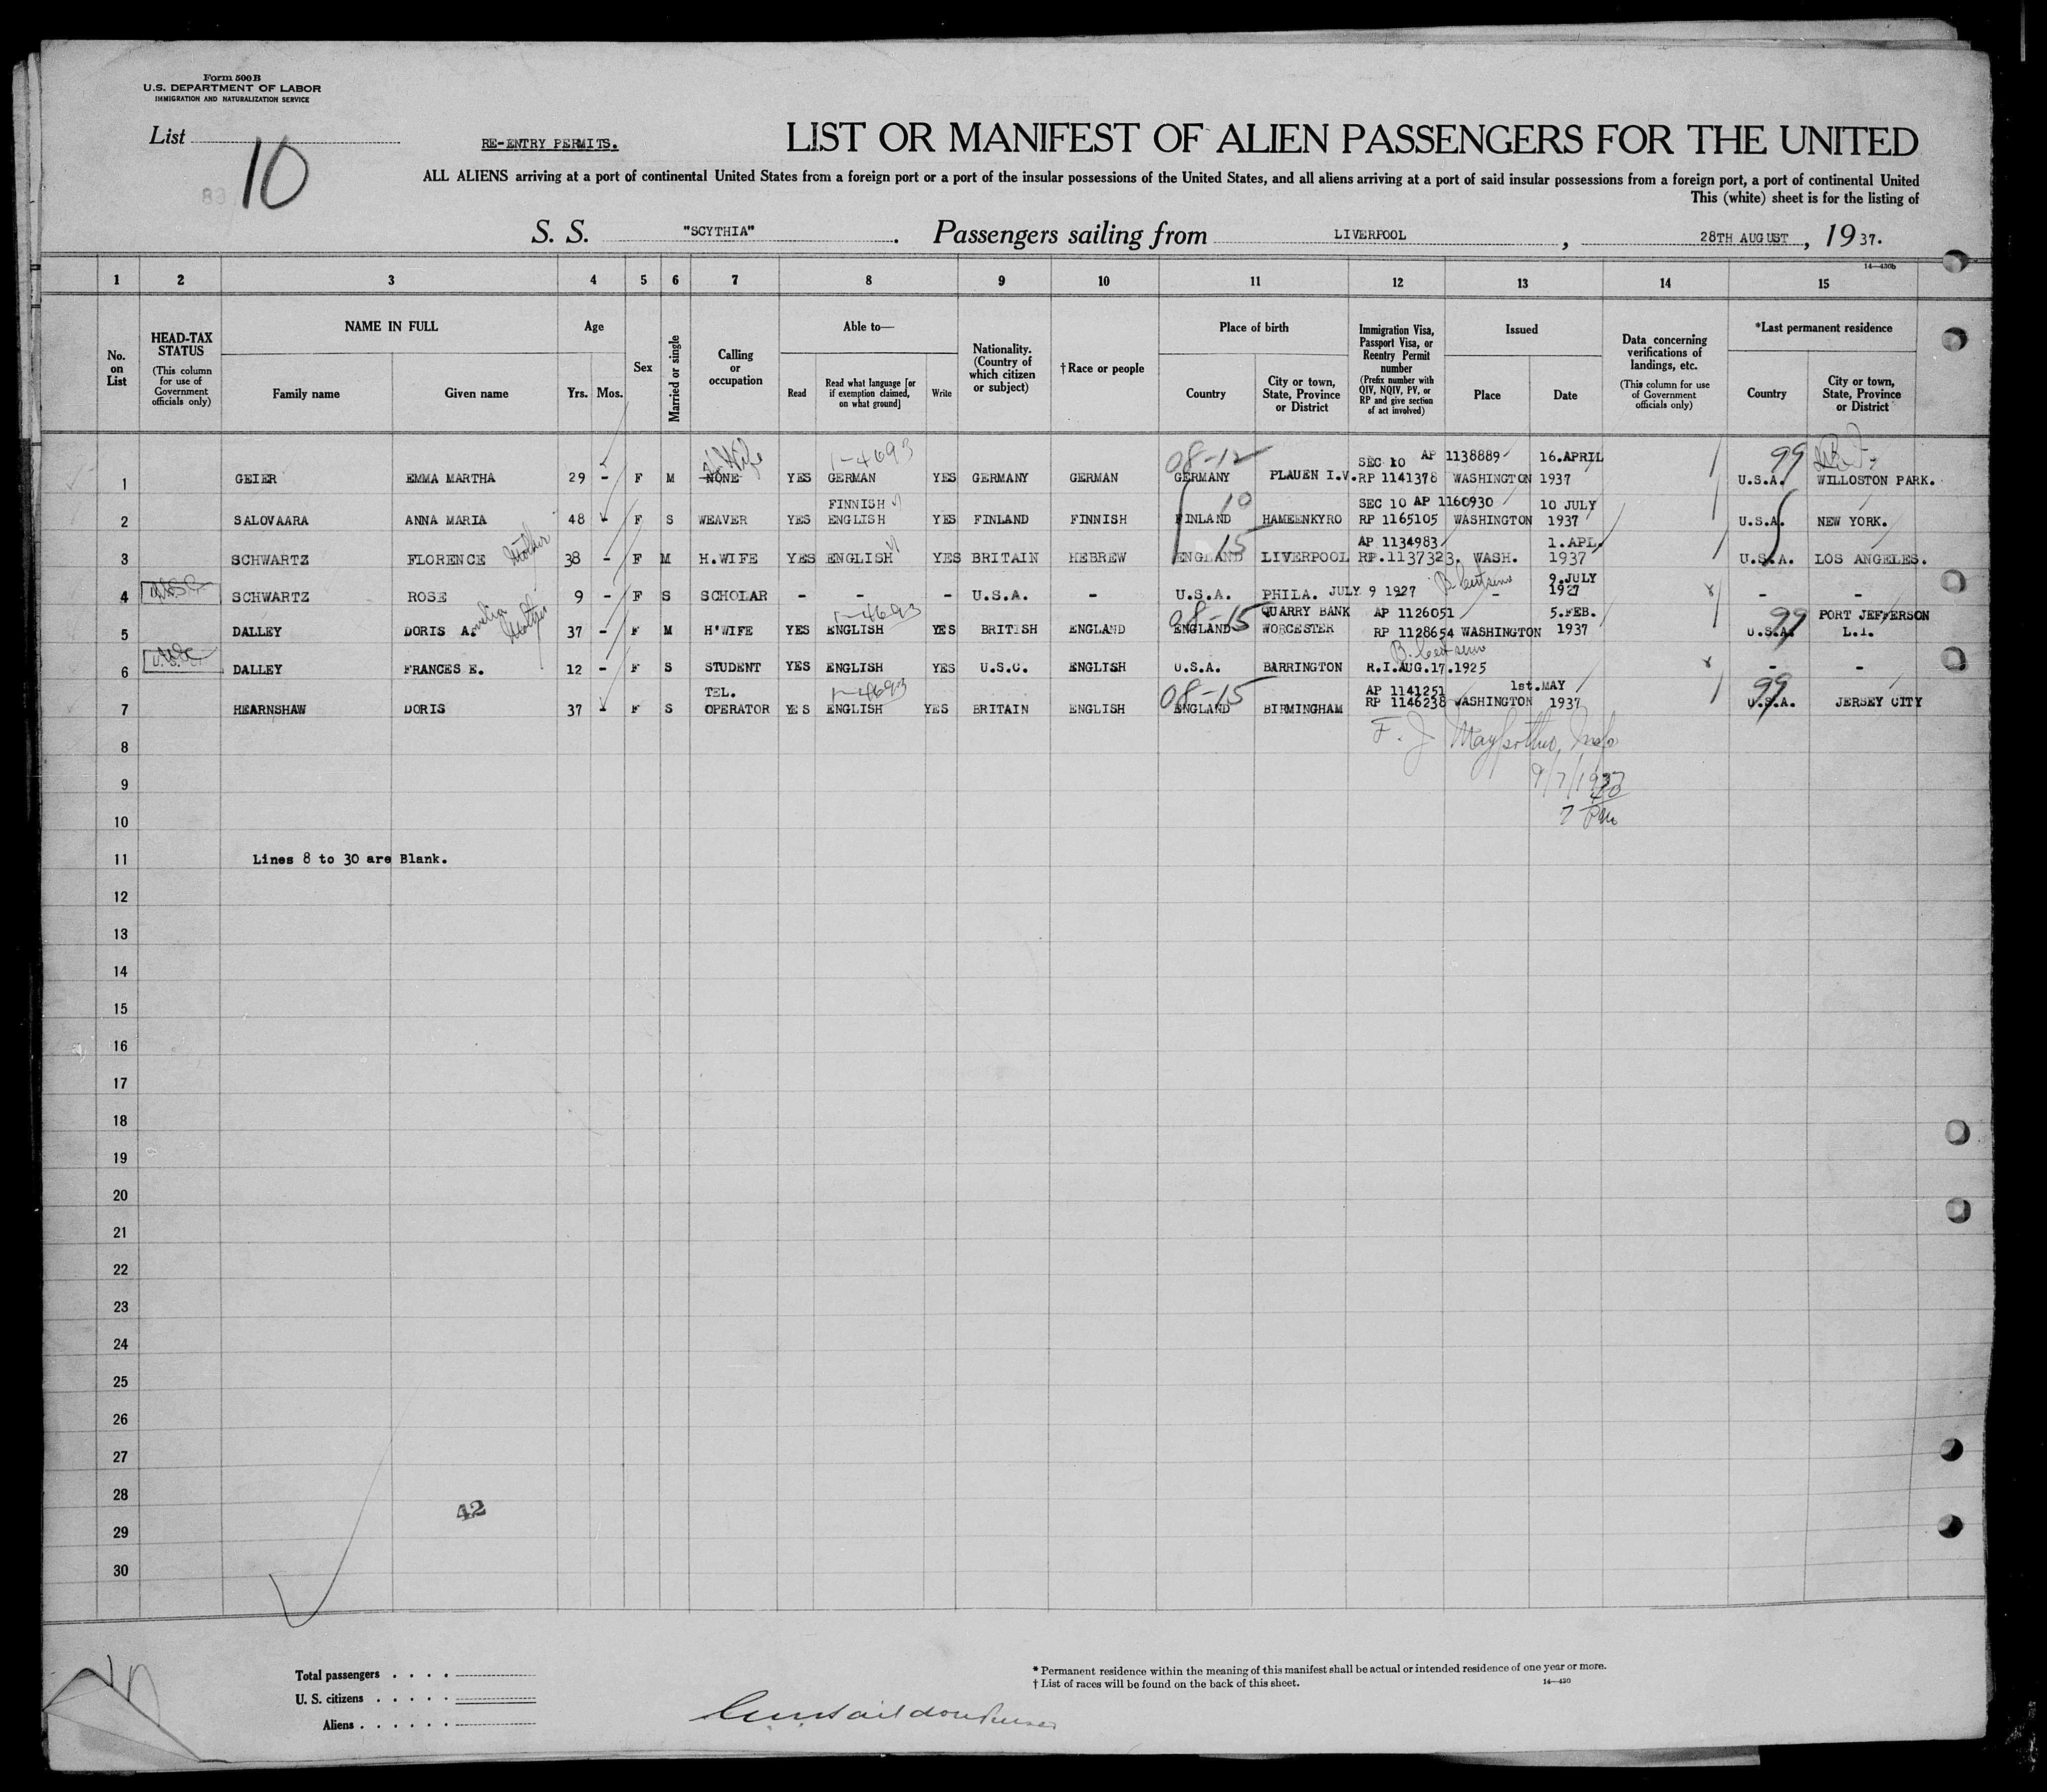 Form 500 B
U.S. DEPARTMENT OF LABOR
IMMIGRATION AND NATURALIZATION SERVICE
List 10
RE-ENTRY PERMITS.
LIST OR MANIFEST OF ALIEN PASSENGERS FOR THE UNITED
ALL ALIENS arriving at a port of continental United States from a foreign port or a port of the insular possessions of the United States, and all aliens arriving at a port of said insular possessions from a foreign port, a port of continental United
This (white) sheet is for the listing of
S. S. "SCYTHIA". Passengers sailing from LIVERPOOL, 28TH AUGUST, 1937.
14—430b
1 2 3 4 5 6 7 8 9 10 11 12 13 14 15
No. on List
HEAD-TAX STATUS
(This column for use of Government officials only)
NAME IN FULL
Family name
Given name
Age
Yrs.
Mos.
Sex
Married or single
Calling or occupation
Able to—
Read
Read what language [or if exemption claimed, on what ground]
Write
Nationality. (Country of which citizen or subject)
† Race or people
Place of birth
Country
City or town, State, Province or District
Immigration Visa, Passport Visa, or Reentry Permit number
(Prefix number with QIV, NQIV, PV, or RP and give section of act involved)
Issued
Place
Date
Data concerning verifications of landings, etc.
(This column for use of Government officials only)
*Last permanent residence
Country
City or town, State, Province or District
H. Wife 1-4693 08-12 SEC 10 AP 1138889 16.APRIL 99
1 GEIER EMMA MARTHA 29 - F M NONE YES GERMAN YES GERMANY GERMAN GERMANY PLAUEN I.V. RP 1141378 WASHINGTON 1937 U.S.A. WILLOSTON PARK.
FINNISH 10 SEC 10 AP 1160930 10 JULY
2 SALOVAARA ANNA MARIA 48 - F S WEAVER YES ENGLISH YES FINLAND FINNISH FINLAND HAMEENKYRO RP 1165105 WASHINGTON 1937 U.S.A. NEW YORK.
15 AP 1134983 1.APL.
3 SCHWARTZ FLORENCE Mother 38 - F M H.WIFE YES ENGLISH YES BRITAIN HEBREW ENGLAND LIVERPOOL RP.1137323. WASH. 1937 U.S.A. LOS ANGELES.
9.JULY
4 SCHWARTZ ROSE 9 - F S SCHOLAR - - - U.S.A. - U.S.A. PHILA. JULY 9 1927 - 1927 - -
1-4693 08-15 QUARRY BANK AP 1126051 5.FEB. 99 PORT JEFFERSON
5 DALLEY DORIS A. Mother 37 - F M H'WIFE YES ENGLISH YES BRITISH ENGLAND ENGLAND WORCESTER RP 1128654 WASHINGTON 1937 U.S.A. L.I.
6 DALLEY FRANCES E. 12 - F S STUDENT YES ENGLISH YES U.S.C. ENGLISH U.S.A. BARRINGTON R.I.AUG.17.1925 - -
TEL. 1-4693 08-15 AP 1141251 1st.MAY 99
7 HEARNSHAW DORIS 37 - F S OPERATOR YES ENGLISH YES BRITAIN ENGLISH ENGLAND BIRMINGHAM RP 1146238 WASHINGTON 1937 U.S.A. JERSEY CITY
8
9 9/7/1937
10
11 Lines 8 to 30 are Blank.
12
13
14
15
16
17
18
19
20
21
22
23
24
25
26
27
28
42
29
30
Total passengers . . . .
U. S. citizens . . . . .
Aliens . . . . . .
* Permanent residence within the meaning of this manifest shall be actual or intended residence of one year or more.
† List of races will be found on the back of this sheet.
14—430